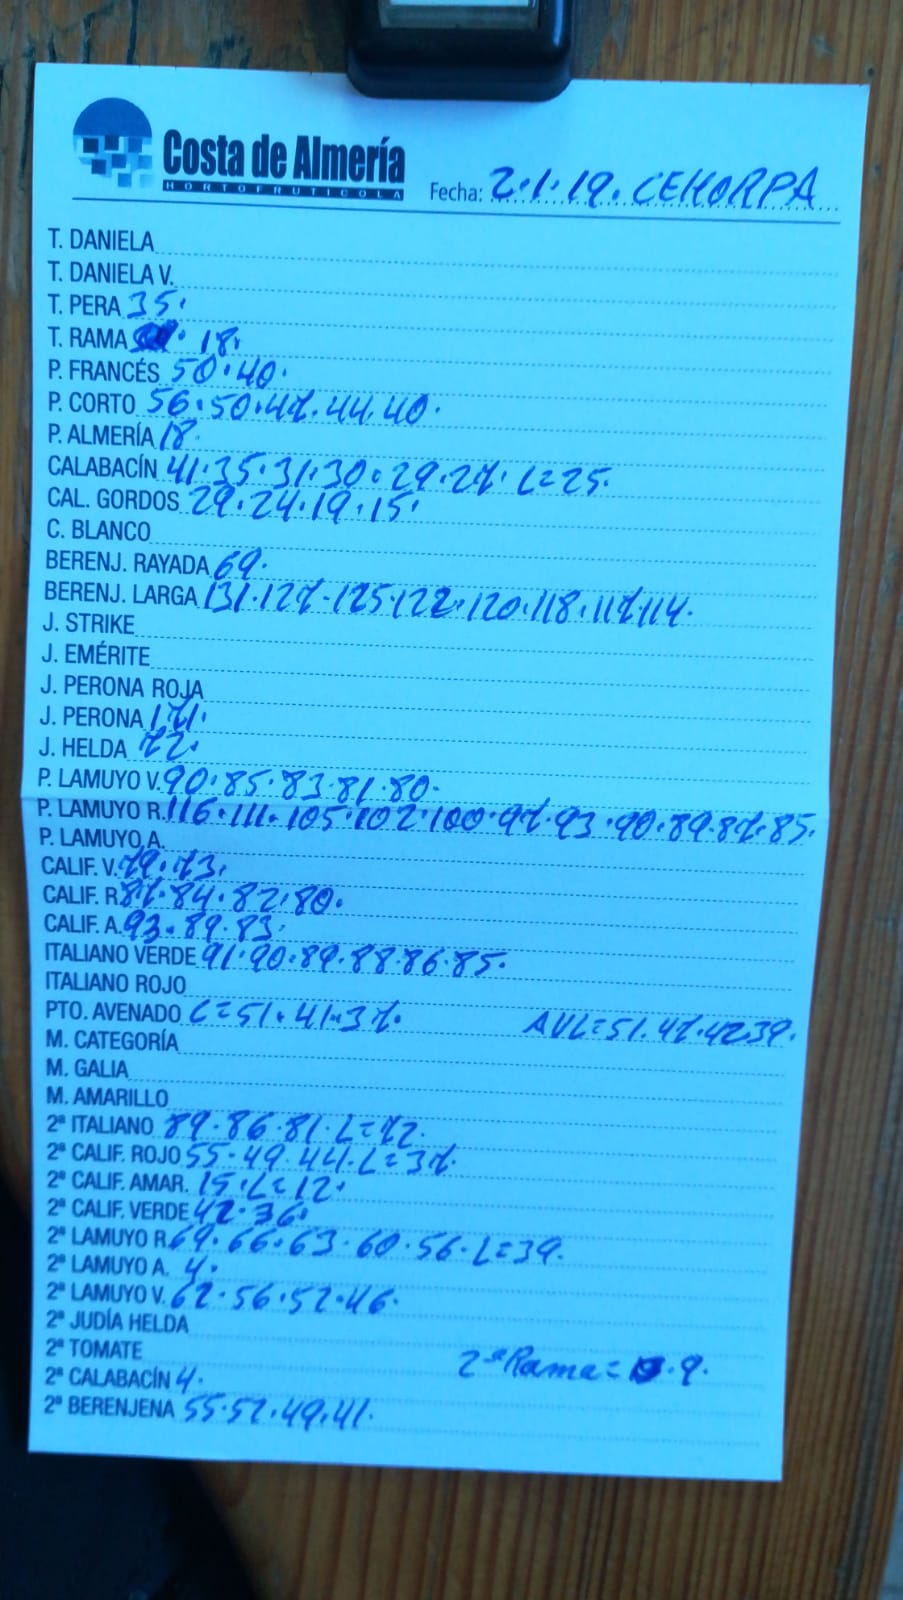 Costa de Almería
HORTOFRUTICOLA
Fecha: 2.1.19. CEHORPA
T. DANIELA
T. DANIELA V.
T. PERA 35.
T. RAMA 18.
P. FRANCÉS 50.40.
P. CORTO 56.50.47.44.40.
P. ALMERÍA 18.
CALABACÍN 41.35.31.30.29.27. L=25.
CAL. GORDOS 29.24.19.15.
C. BLANCO
BERENJ. RAYADA 69.
BERENJ. LARGA 131.127.125.122.120.118.117.114.
J. STRIKE
J. EMÉRITE
J. PERONA ROJA
J. PERONA 171.
J. HELDA 72.
P. LAMUYO V. 90.85.83.81.80.
P. LAMUYO R. 116.111.105.102.100.97.93.90.89.87.85.
P. LAMUYO A.
CALIF. V. 79.73.
CALIF. R. 87.84.82.80.
CALIF. A. 93.89.83.
ITALIANO VERDE 91.90.89.88.86.85.
ITALIANO ROJO
PTO. AVENADO C=51.41.37. AVL=51.47.42.39.
M. CATEGORÍA
M. GALIA
M. AMARILLO
2ª ITALIANO 89.86.81. L=72.
2ª CALIF. ROJO 55.49.44. L=37.
2ª CALIF. AMAR. 15. L=12.
2ª CALIF. VERDE 42.36.
2ª LAMUYO R. 69.66.63.60.56. L=39.
2ª LAMUYO A. 4.
2ª LAMUYO V. 62.56.52.46.
2ª JUDÍA HELDA
2ª TOMATE 2ª Rama= 9.
2ª CALABACÍN 4.
2ª BERENJENA 55.52.49.41.